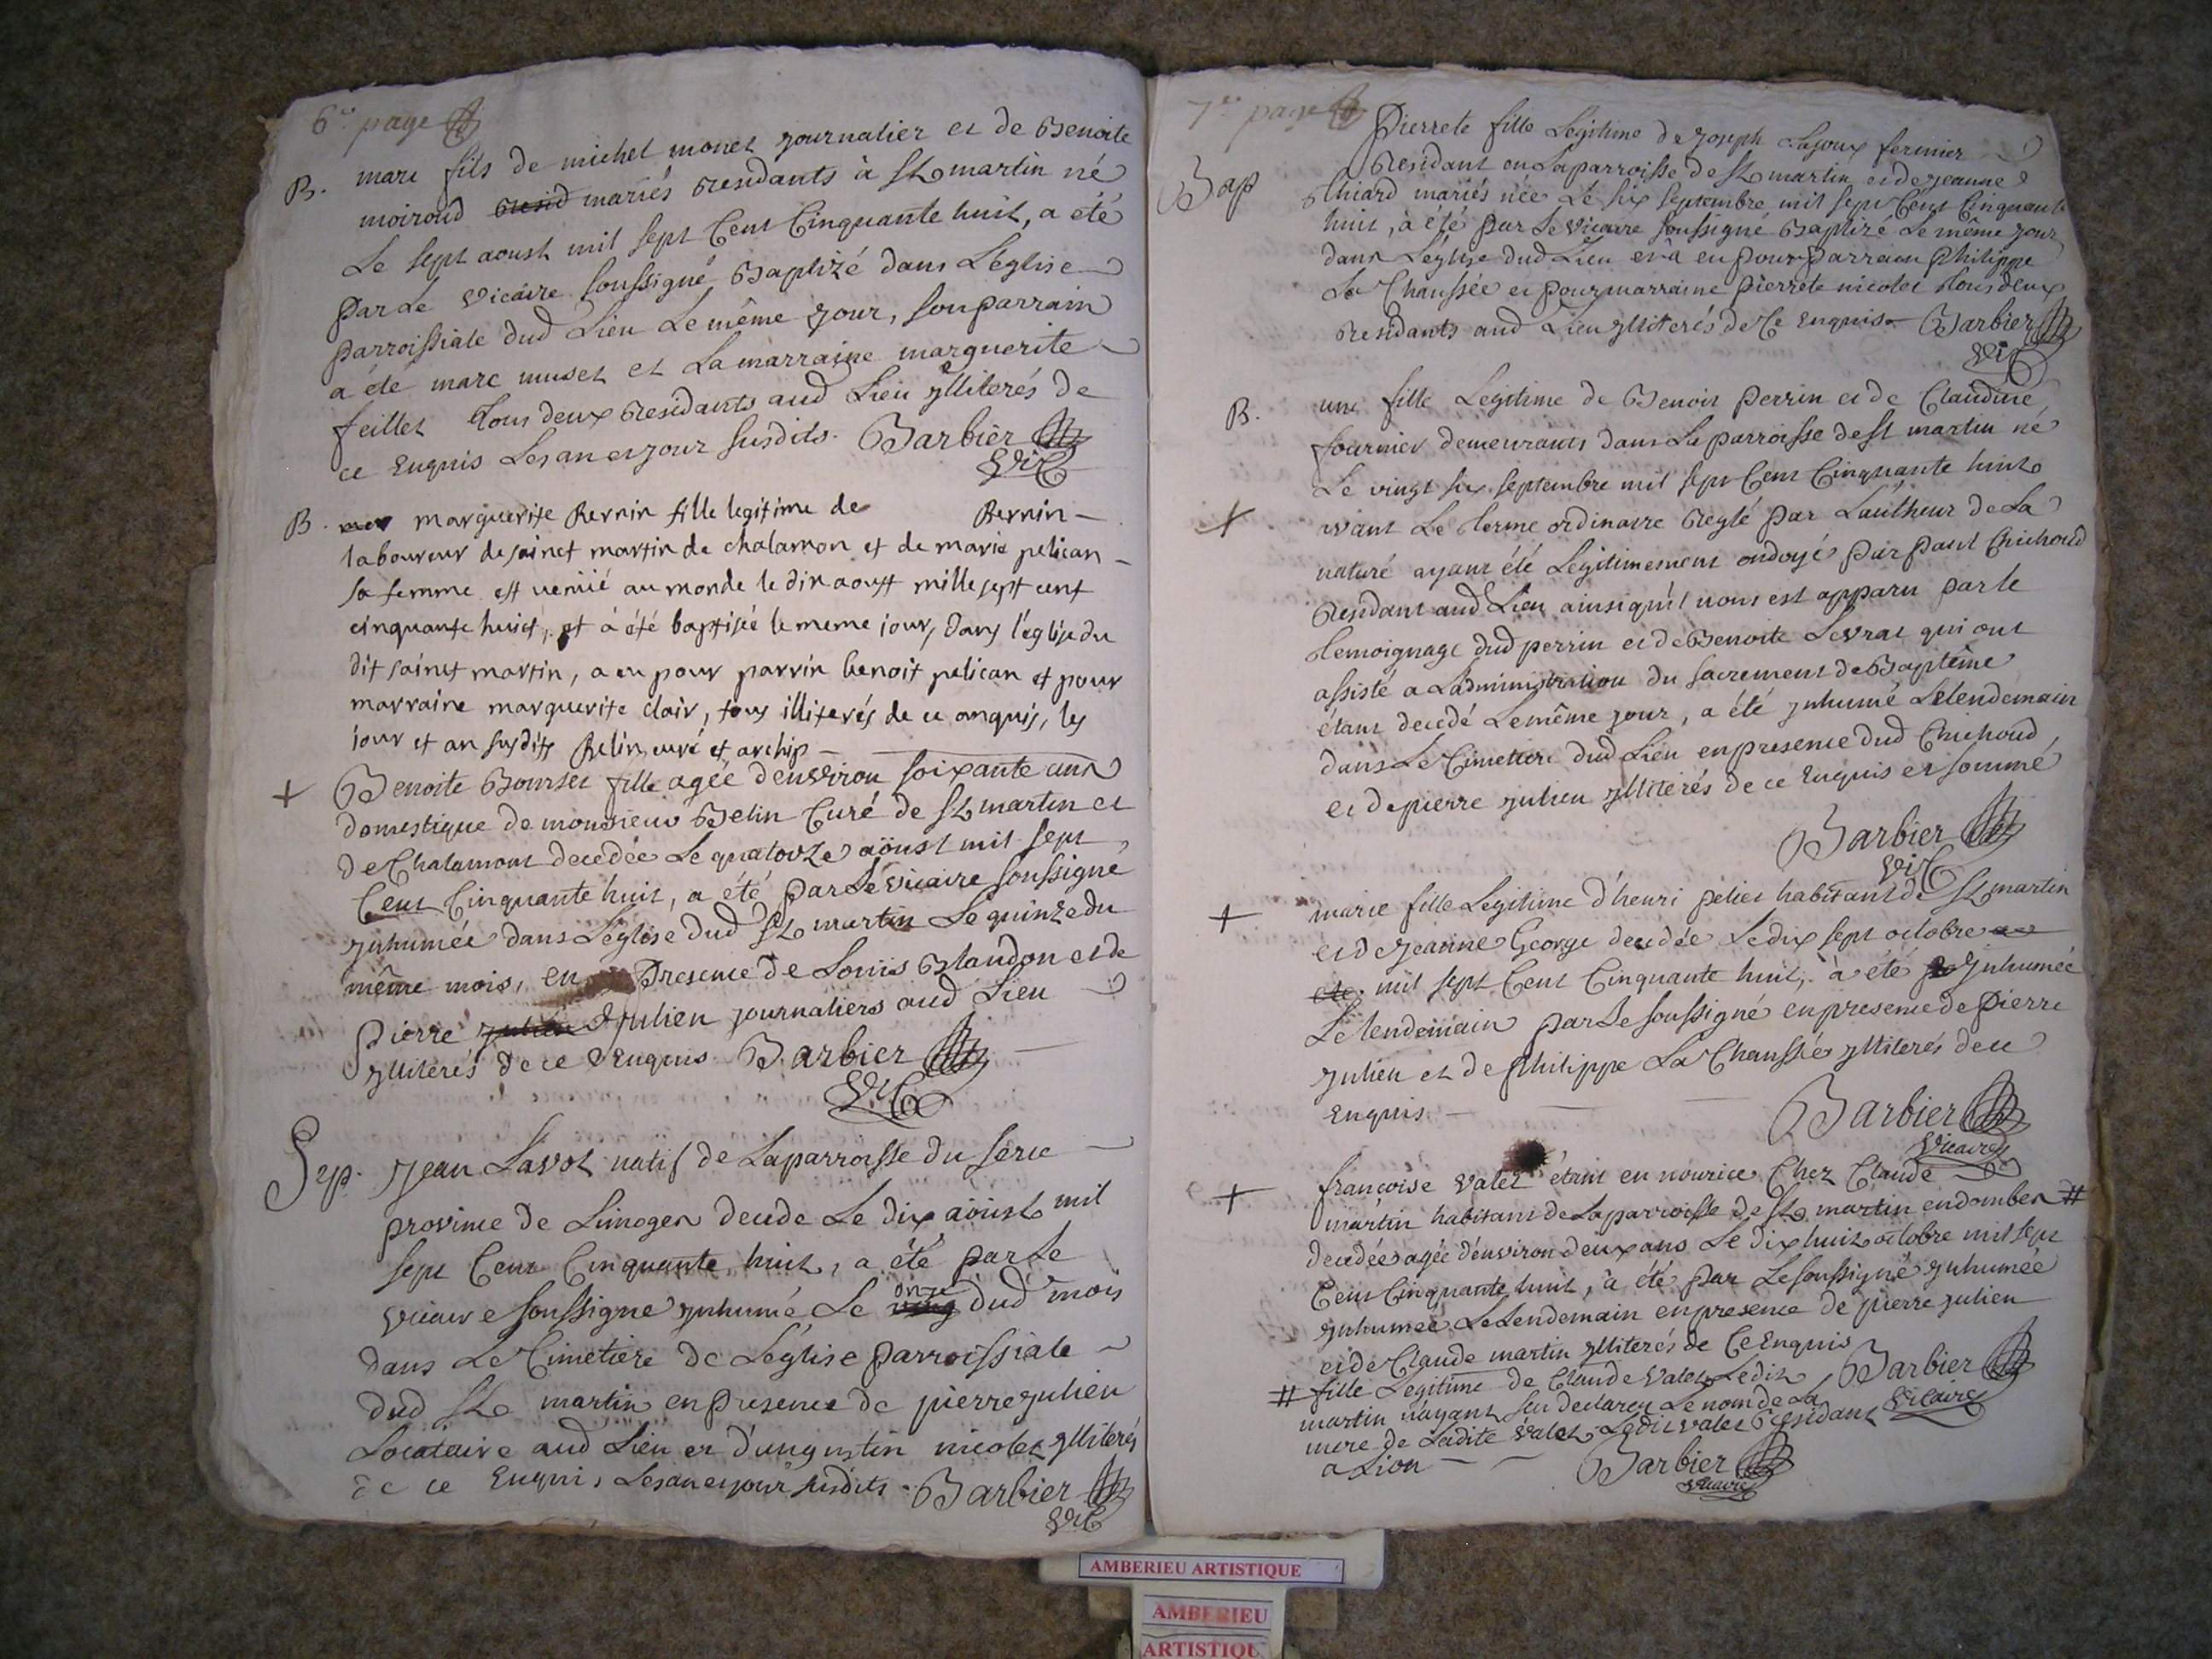 6e page
B. marc fils de michel monet journalier et de Benoite
moiroud resid mariés residants à St martin né
Le sept aoust mil sept Cent Cinquante huit, a eté
par Le vicaire soussigné Baptizé dans L'église
parroissiale dud Lieu Le même jour, son parrain
a été marc muset et La marraine marguerite
feillet tous deux residants aud Lieu ylliterés de
ce Enquis Les an et jour susdits. Barbier
Vic
B. marguerite Bernin fille legitime de Bernin
laboureur de sainct martin de chalamon et de marie pelican
sa femme est venüe au monde le dix aoust mille sept cent
cinquante huict, et à été baptisée le meme jour, dans l'eglise du
dit sainct martin, a eu pour parrin benoit pelican et pour
marraine marguerite clair, tous illiterés de ce anquis, les
jour et an susdits Belin curé et archip
+ Benoite Bourset fille agée d'environ soixante ans
domestique de monsieur Belin Curé de St martin et
de Chalamont decedée Le quatorze aoust mil sept
Cent Cinquante huit, a été par Le vicaire soussigné
ynhumée dans L'église dud St martin Le quinze du
même mois, en presence de Louis Blandon et de
Pierre julien Julien journaliers aud Lieu
yllitérés de ce Enquis Barbier
Vic
Sep. Jean Lavot natif de La parroisse du
province de Limoges decede Le dix aöust mil
sept Cent Cinquante huit, a été par Le
vicaire soussigné ynhumé Le onze dud mois
dans Le Cimetiere de L'église parroissiale
dud St martin en presence de pierre julien
Locataire aud Lieu et d'augustin nicolet yllitérés
de ce Enquis Les an et jour susdits. Barbier
Vic
7e page
Pierrete fille Légitime de Joseph Lajoux fermier
Bap Residant en La parroisse de St martin et de jeanne
Chiard mariés née Le six septembre mil sept Cent Cinquante
huit, à été par Le vicaire soussigné Baptizé Le même jour
dans L'église dud Lieu et a eu pour parrain Philippe
La Chaussée et pour marraine pierrete nicolet tous deux
residants aud Lieu ylliterés de Ce Enquis Barbier
Vic
B. une fille Legitime de Benoit perrin et de Claudine
fournier demeurants dans La parroisse de st martin né
Le vingt six septembre mil sept Cent Cinquante huit
+ avant Le terme ordinaire reglé par L'autheur de La
nature ayant été Légitimement ondoyé par paul Chichoud
residant aud Lieu ainsi qu'il nous est apparu par le
temoignage dud perrin et de Benoite Levrat qui ont
assisté a L'administration du sacrement de Baptême
étant decedé Le même jour, a été ynhumé Le lendemain
dans Le Cimetiere dud Lieu en presence dud Chichoud
et de pierre julien yllitérés de ce Enquis et sommé
Barbier
Vic
+ marie fille Legitime d'henri pelier habitant de St martin
et de jeanne George decedée Le dix sept octobre
mil sept Cent Cinquante huit, a été ynhumée
Le lendemain par Le soussigné en presence de Pierre
julien et de philippe La Chaussée yllitérés de ce
Enquis Barbier
Vicaire
+ françoise valet étant en nourice Chez Claude
martin habitant de La parroisse de St martin en dombes #
decedée agée d'environ deux ans Le dix huit octobre mil sept
Cent Cinquante huit, a été par Le soussigné ynhumée
ynhumée Le Lendemain en presence de pierre julien
et de Claude martin yllitérés de Ce Enquis
# fille Legitime de Claude valet Ledit Barbier
martin n'ayant sçu declarer Le nom de La Vicaire
mere de Ladite valet, Ledit valet Residant
a Lion Barbier
vicaire
AMBERIEU ARTISTIQUE
AMBERIEU
ARTISTIQU